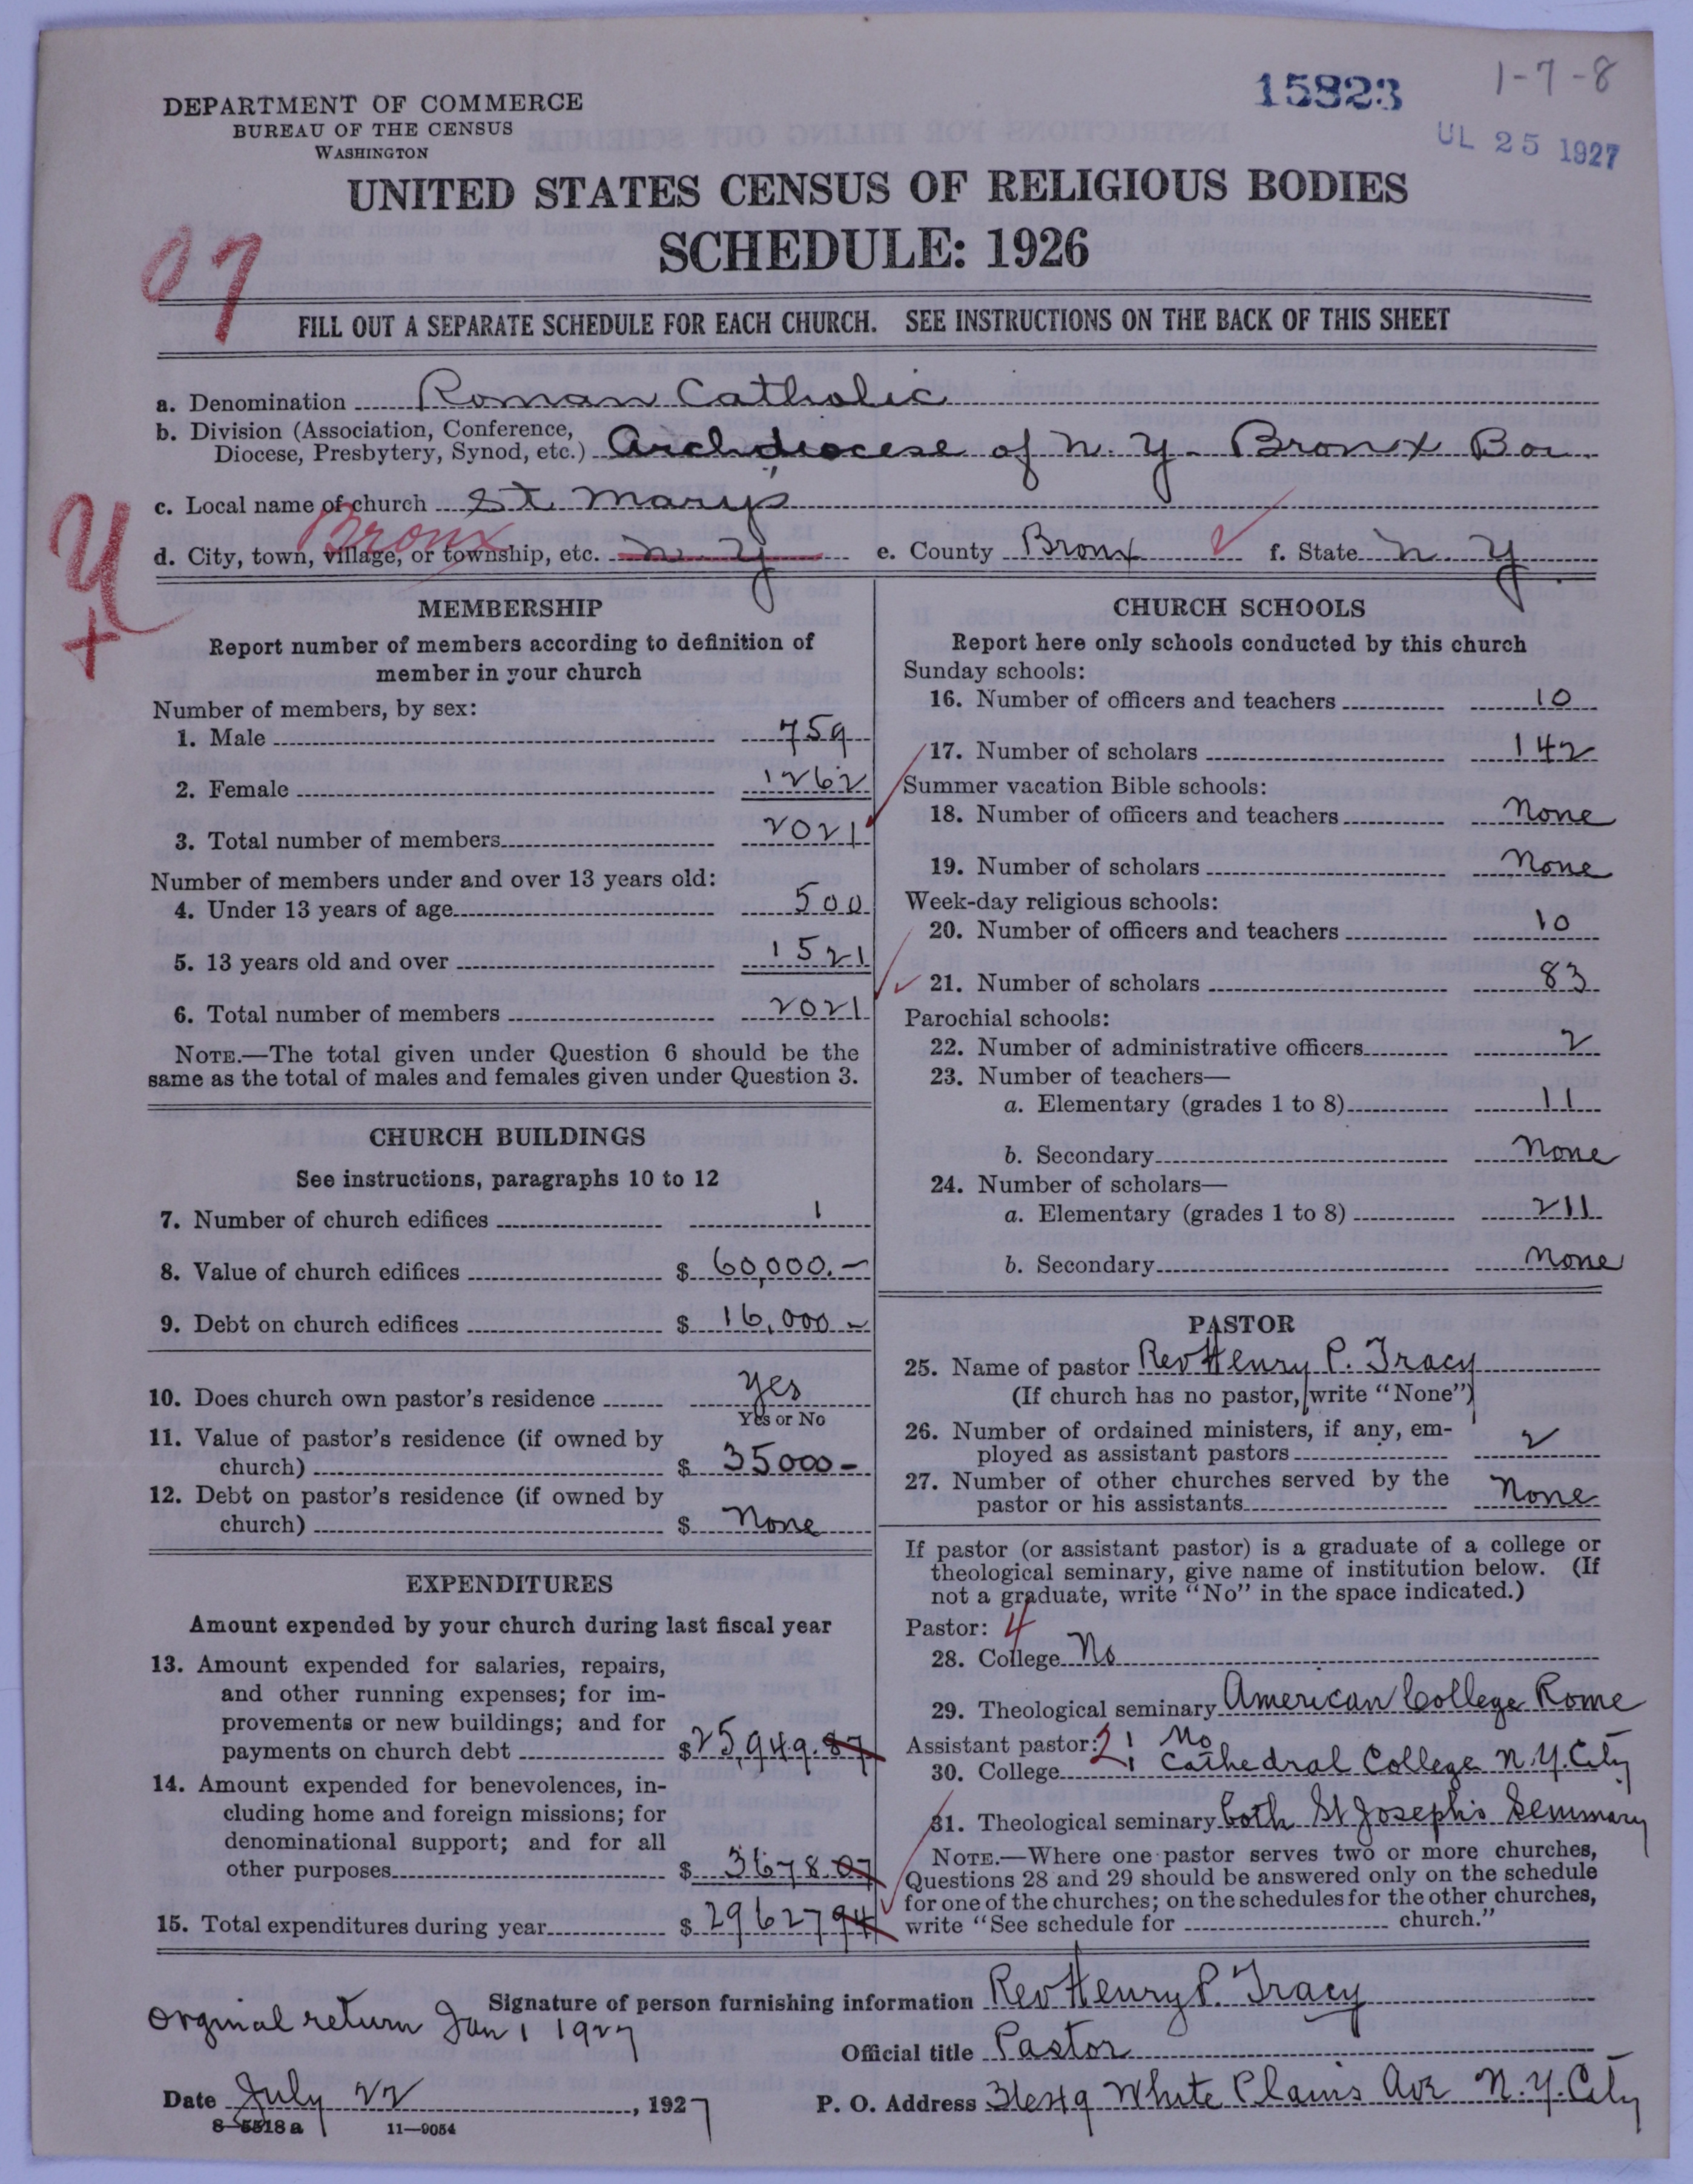 15823
1-7-8
UL 25 1927
DEPARTMENT OF COMMERCE
BUREAU OF THE CENSUS
WASHINGTON
UNITED STATES CENSUS OF RELIGIOUS BODIES
SCHEDULE: 1926
07
FILL OUT A SEPARATE SCHEDULE FOR EACH CHURCH. SEE INSTRUCTIONS ON THE BACK OF THIS SHEET
a. Denomination Roman Catholic
b. Division (Association, Conference,
Diocese, Presbytery, Synod, etc.) Archdiocese of N. Y. Bronx Bor.
c. Local name of church St. Mary's
Bronx
d. City, town, village, or township, etc. N. Y e. County Bronx f. State N. Y
MEMBERSHIP
Report number of members according to definition of
member in your church
Number of members, by sex:
1. Male 759
2. Female 1262
3. Total number of members 2021
Number of members under and over 13 years old:
4. Under 13 years of age 500
5. 13 years old and over 1521
6. Total number of members 2021
NOTE.—The total given under Question 6 should be the
same as the total of males and females given under Question 3.
CHURCH BUILDINGS
See instructions, paragraphs 10 to 12
7. Number of church edifices 1
8. Value of church edifices $ 60,000.—
9. Debt on church edifices $ 16,000 —
10. Does church own pastor's residence yes
Yes or No
11. Value of pastor's residence (if owned by
church) $ 35000 —
12. Debt on pastor's residence (if owned by
church) $ None
EXPENDITURES
Amount expended by your church during last fiscal year
13. Amount expended for salaries, repairs,
and other running expenses; for im-
provements or new buildings; and for
payments on church debt $ 25,949.87
14. Amount expended for benevolences, in-
cluding home and foreign missions; for
denominational support; and for all
other purposes $ 3678.07
15. Total expenditures during year $ 29627 94
CHURCH SCHOOLS
Report here only schools conducted by this church
Sunday schools:
16. Number of officers and teachers 10
17. Number of scholars 142
Summer vacation Bible schools:
18. Number of officers and teachers None
19. Number of scholars None
Week-day religious schools:
20. Number of officers and teachers 10
21. Number of scholars 83
Parochial schools:
22. Number of administrative officers 2
23. Number of teachers—
a. Elementary (grades 1 to 8) 11
b. Secondary None
24. Number of scholars—
a. Elementary (grades 1 to 8) 211
b. Secondary None
PASTOR
25. Name of pastor Rev Henry P. Tracy
(If church has no pastor, write "None")
26. Number of ordained ministers, if any, em-
ployed as assistant pastors 2
27. Number of other churches served by the
pastor or his assistants None
If pastor (or assistant pastor) is a graduate of a college or
theological seminary, give name of institution below. (If
not a graduate, write "No" in the space indicated.)
Pastor: 4
28. College No
29. Theological seminary American College Rome
Assistant pastor: 2 1 No
30. College 1 Cathedral College N.Y. City
31. Theological seminary both St Joseph's Seminary
NOTE.—Where one pastor serves two or more churches,
Questions 28 and 29 should be answered only on the schedule
for one of the churches; on the schedules for the other churches,
write "See schedule for church."
Signature of person furnishing information Rev Henry P. Tracy
Orginal return Jan 1 1927
Official title Pastor
Date July 22, 1927 P. O. Address White Plains Ave N.Y. City
8-5518 a 11-9054